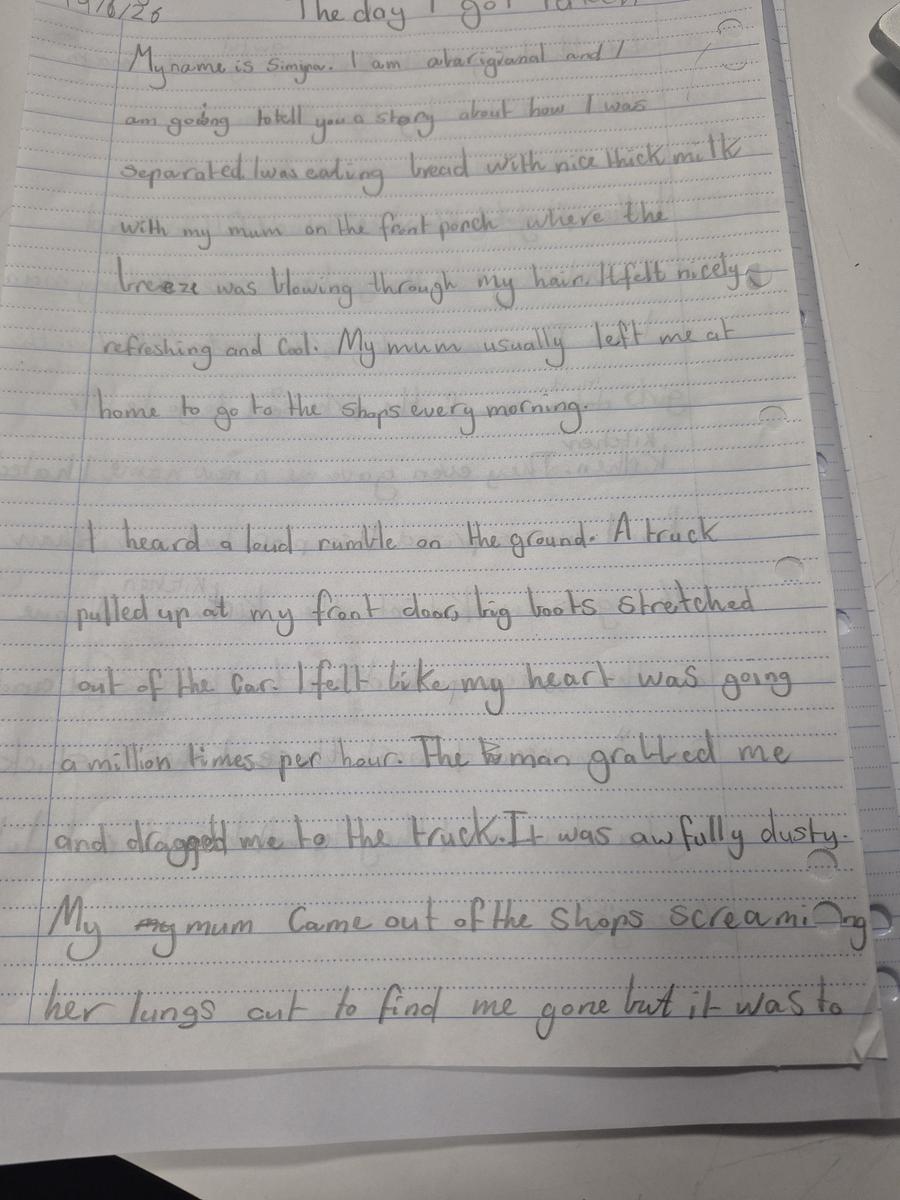 19/6/26 The day I got taken
My name is Simyna. I am abariginal and I
am going to tell you a story about how I was
separated. I was eating bread with nice thick milk
with my mum on the front porch where the
breeze was blowing through my hair. It felt nicely
refreshing and cool. My mum usually left me at
home to go to the shops every morning.
I heard a loud rumble on the ground. A truck
pulled up at my front door, big boots stretched
out of the car. I felt like my heart was going
a million times per hour. The man grabbed me
and dragged me to the truck. It was awfully dusty.
My my mum came out of the shops screaming
her lungs out to find me gone but it was to